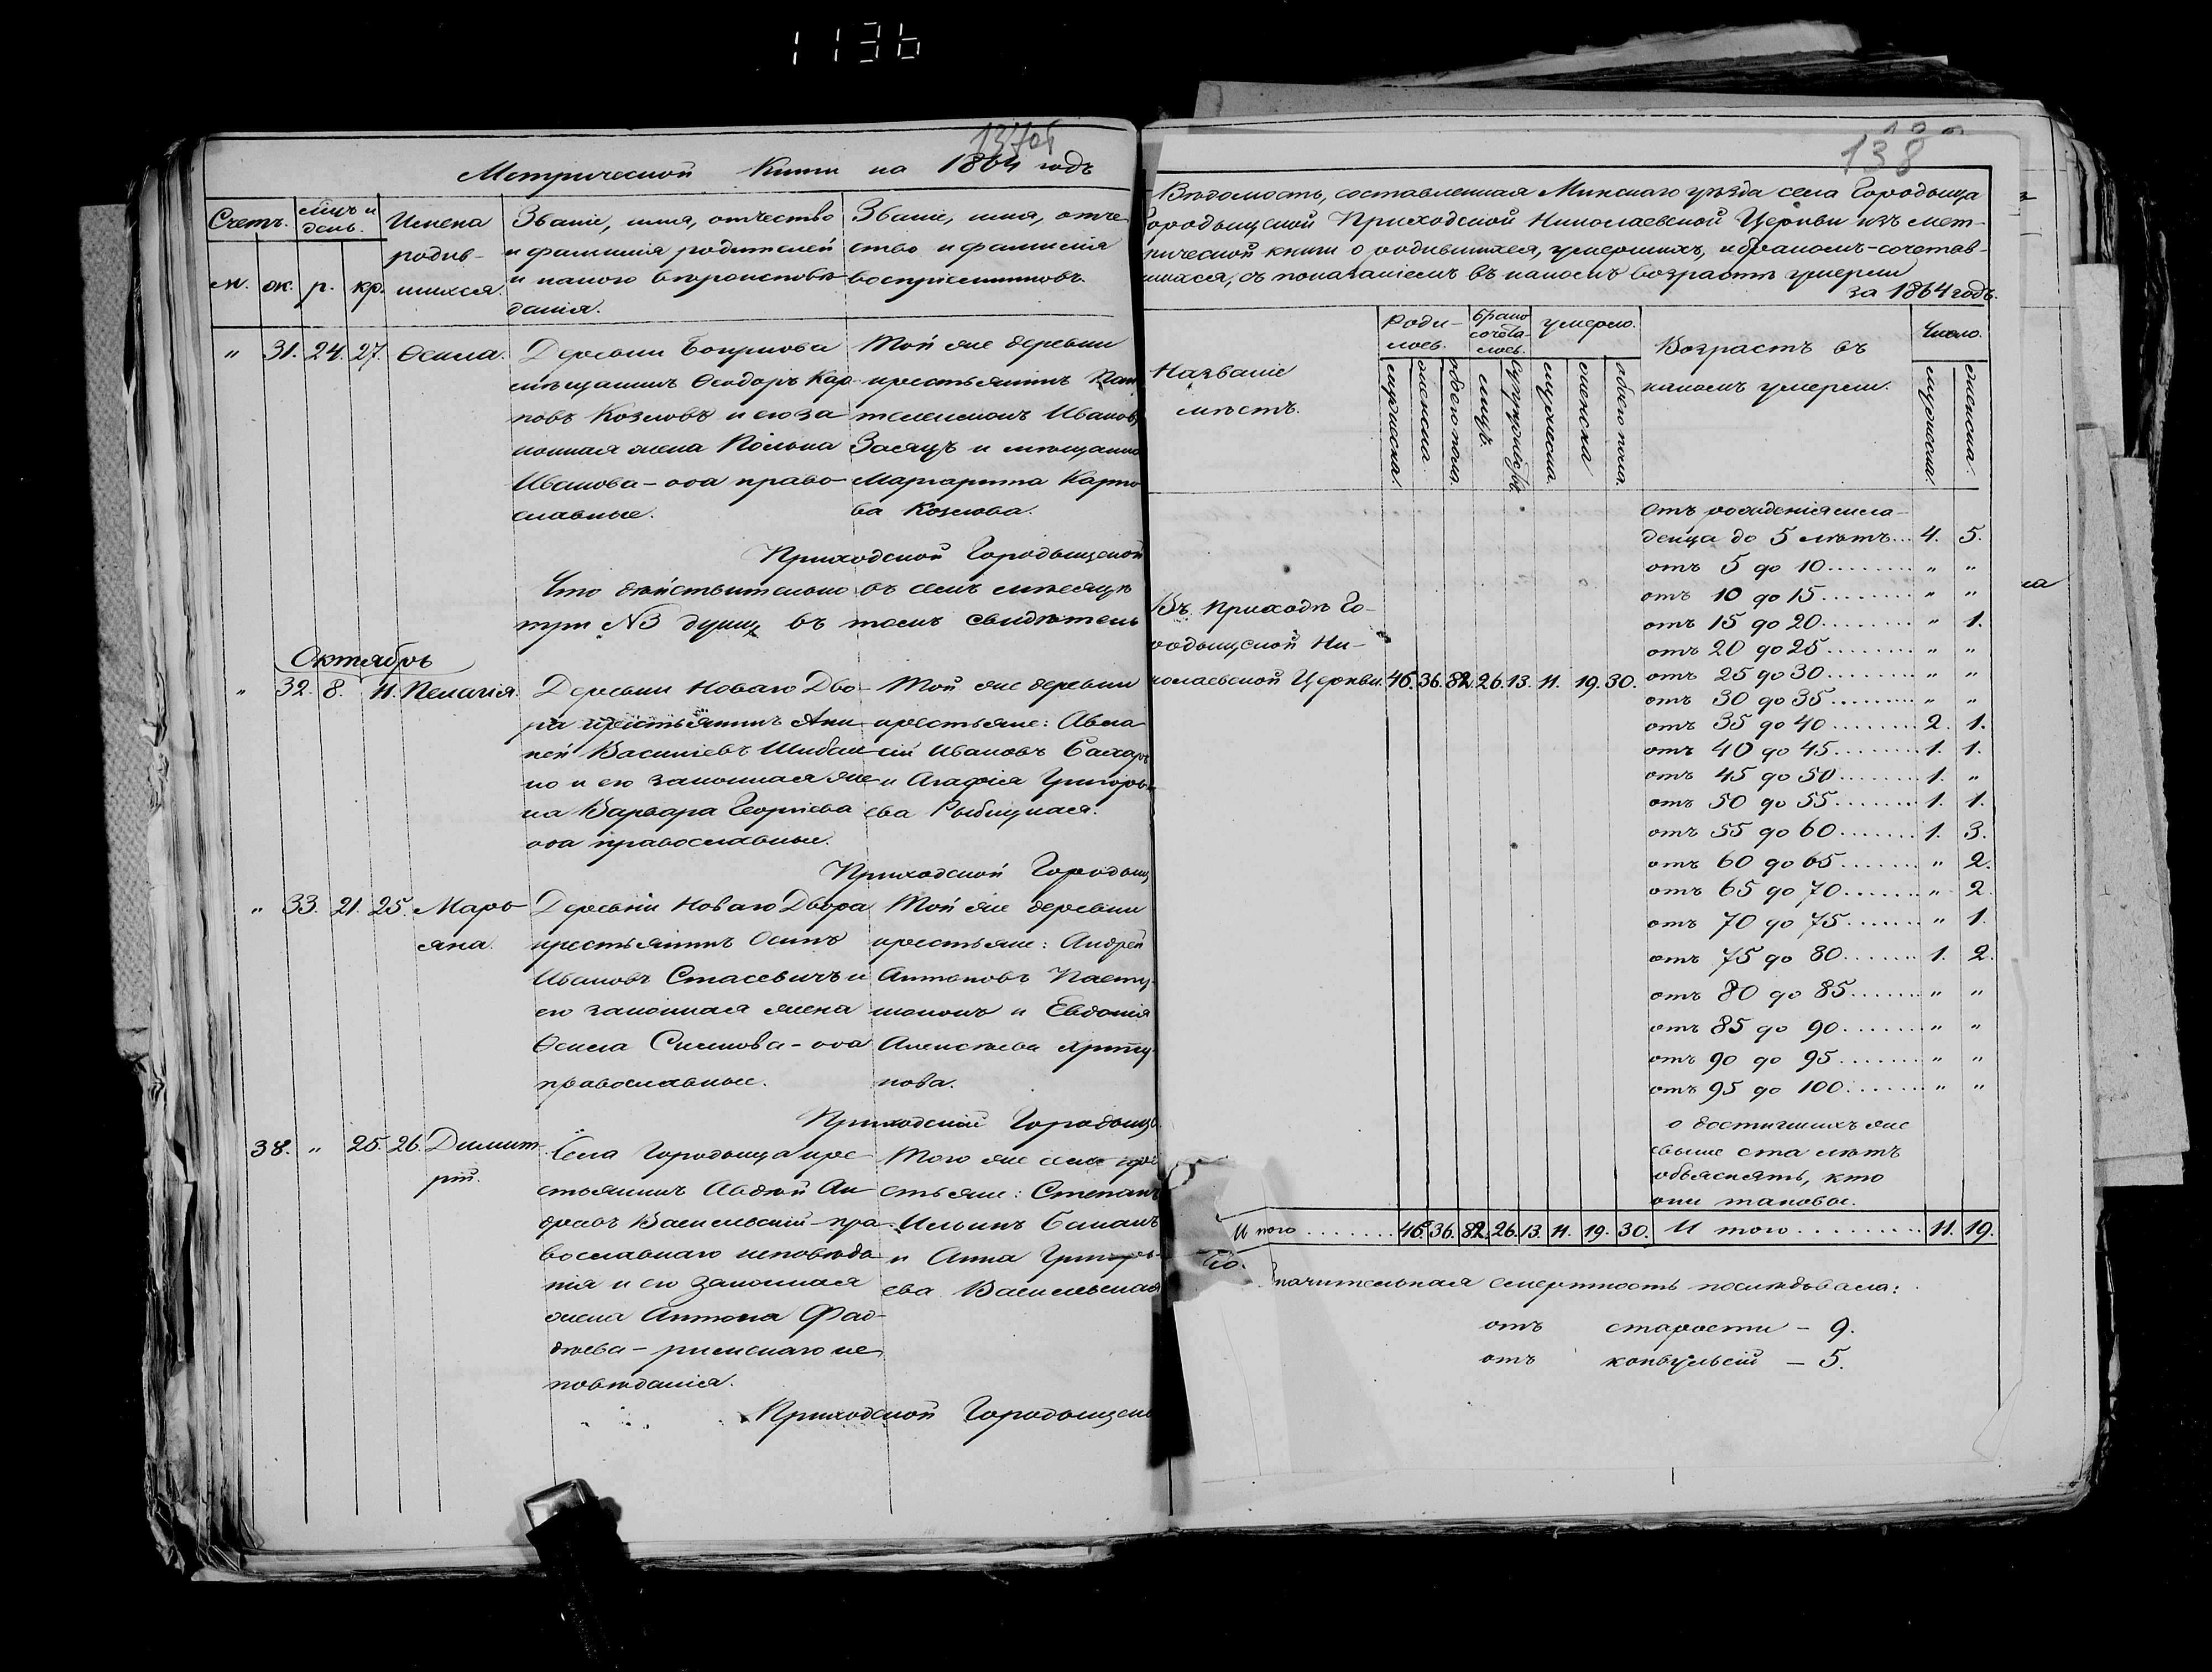 1136
Метрической Книги на 1864 годъ
Счетъ.
мцъ и день.
Имена родив-
шихся.
м. ж. р. кр.
Званіе, имя, отчество
и фамилія родителей
и какого вѣроисповѣ-
данія.
Званіе, имя, отче-
ство и фамилія
воспріемниковъ.
" 31. 24. 27. Ѳекла.
Деревни
мѣщанинъ Ѳеодоръ Кар-
повъ Козловъ и его за
конная жена
Иванова - оба право-
славные.
Той же деревни
крестьянинъ Пан
телеимонъ Ивановъ
Заяцъ и мѣщанка
Маргарита Карпо
ва Козлова.
Приходской Городыщской
Что дѣйствительно въ семъ мѣсяцѣ
три №3 душъ въ томъ свидѣтель
Октябрь
" 32. 8. 11. Пелагія.
Деревни Новаго Дво-
ра крестьянинъ Аки
ней Василіевъ Шибаи
ко и его законная же
на Варвара Георгіева
оба православные.
Той же деревни
крестьяне: Авксен
сій Ивановъ
и Агафія Григорь
ева Рыбицкая.
Приходской Городыщ
" 33. 21. 25. Марь
яна.
Деревни Новаго Двора
крестьянинъ Осипъ
Ивановъ Стасевичъ и
его законная жена
Ѳекла Симнова - оба
православные.
Той же деревни
крестьяне: Андрей
Антоновъ Пасту-
шонокъ и Евдокія
Алексѣева
нова.
Приходской Городыщ
38. " 25. 26. Димит-
рій.
Села Городыща кре
стьянинъ Авдѣй Ан
дреевъ Василевскій - пра-
вославнаго исповѣда
нія и его законная
жена Антона Фад-
дѣева - римскаго ис
повѣданія.
Того же села кре
стьяне: Степанъ
Ильинъ
и Анна Григорь
ева Василевская
Приходской Городыщск
138
Вѣдомость, составленная Минскаго уѣзда села Городыща
Городыщской Приходской Николаевской Церкви изъ мет-
рической книги о родившихся, умершихъ, и бракомъ-сочетав-
шихся, съ показаніемъ въ какомъ возрастѣ умерли
за 1864 годъ.
Названіе
мѣстъ.
Роди-
лось.
Брако
сочета-
лось.
умерло.
Возрастъ въ
какомъ умерли.
Число.
мужеска
женска
обоего пола.
мужеска
женска
обоего пола.
мужеска.
женска.
Отъ рожденія мла-
денца до 5 лѣтъ... 4. 5.
отъ 5 до 10........ " "
отъ 10 до 15........ " "
отъ 15 до 20........ " 1.
отъ 20 до 25........ " "
Въ приходѣ Го-
родыщской Ни-
колаевской Церкви. 46. 36. 82. 26. 13. 11. 19. 30.
отъ 25 до 30........ " "
отъ 30 до 35........ " "
отъ 35 до 40........ 2. 1.
отъ 40 до 45........ 1. 1.
отъ 45 до 50........ 1. "
отъ 50 до 55........ 1. 1.
отъ 55 до 60........ 1. 3.
отъ 60 до 65........ " 2.
отъ 65 до 70........ " 2.
отъ 70 до 75........ " 1.
отъ 75 до 80........ 1. 2.
отъ 80 до 85........ " "
отъ 85 до 90........ " "
отъ 90 до 95........ " "
отъ 95 до 100....... " "
о достигшихъ же
свыше ста лѣтъ
объяснять, кто
они таковы.
Итого ....... 46. 36. 82. 26. 13. 11. 19. 30. Итого ......... 11. 19.
Значительная смертность послѣдовала:
отъ старости - 9.
отъ конвульсій - 5.